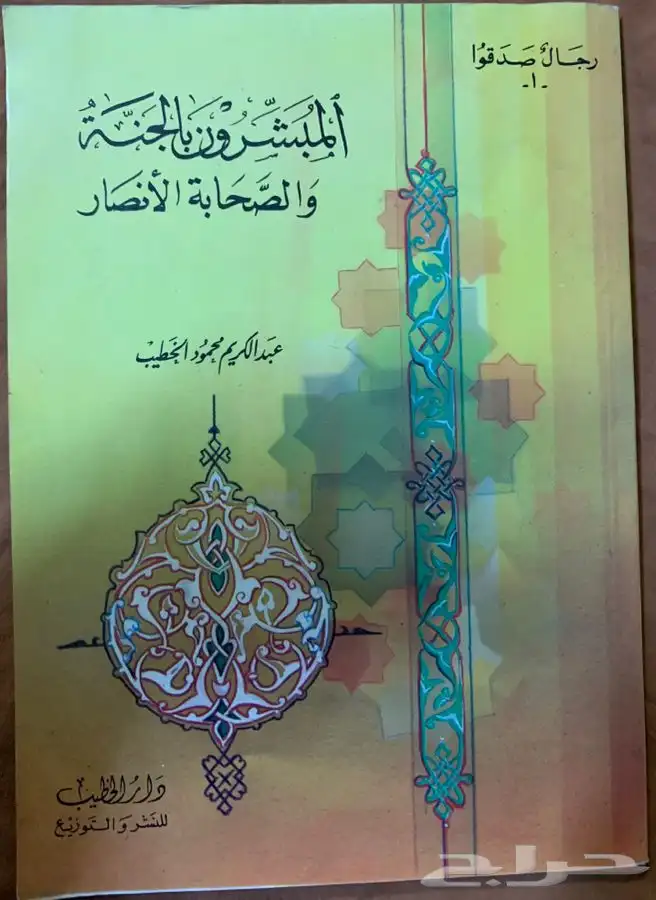 رجَالٌ صَدَقوُا
-١-
المُبَشِّرُوْن بِالجَنَّةُ
وَالصَّحَابة الأنصَار
عبَدالكريم محمُود الخَطيبْ
دَارُ الخَطيبْ
للنَشر وَالتَوزيْع
حراج